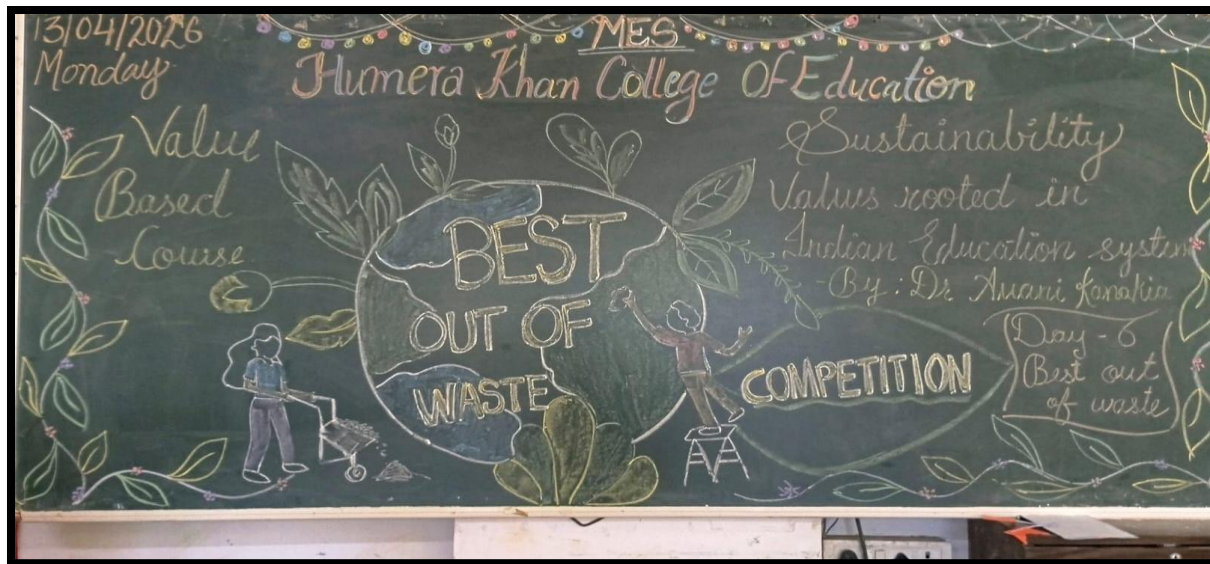 13/04/2026
Monday
MES
Humera Khan College Of Education
Value
Based
Course
BEST
OUT OF
WASTE
COMPETITION
Sustainability
Values rooted in
Indian Education system
By: Dr Avani Kanakia
Day - 6
Best out
of waste